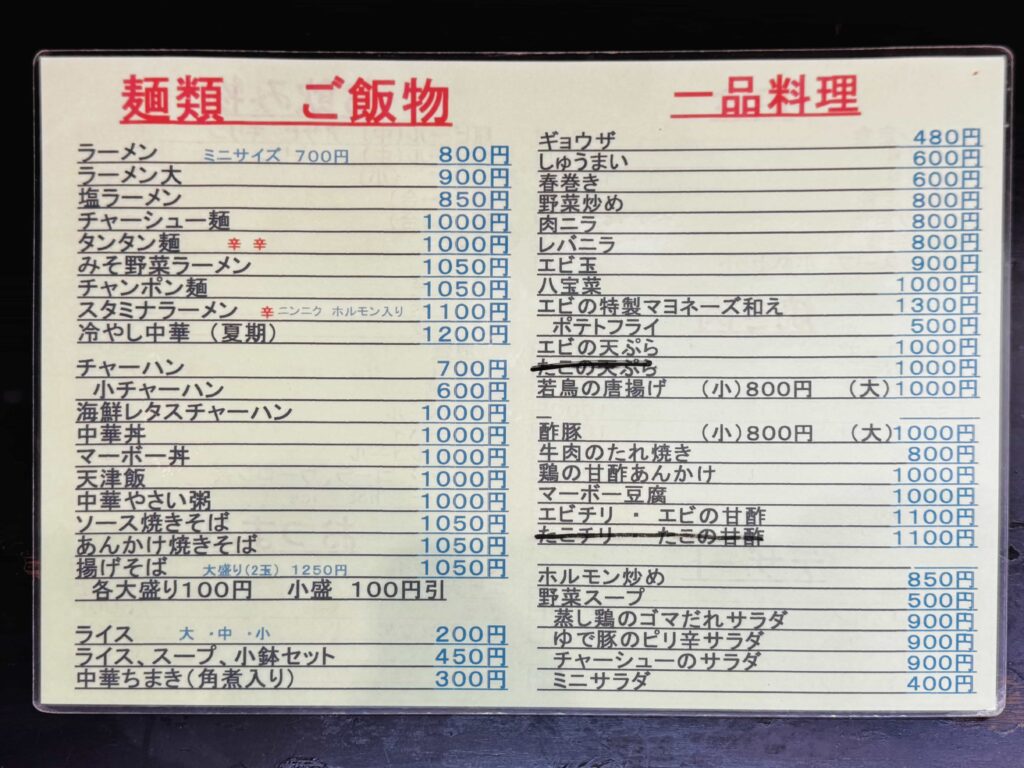 麺類　ご飯物
ラーメン　ミニサイズ 700円　800円
ラーメン大　900円
塩ラーメン　850円
チャーシュー麺　1000円
タンタン麺　辛 辛　1000円
みそ野菜ラーメン　1050円
チャンポン麺　1050円
スタミナラーメン　辛 ニンニク ホルモン入り　1100円
冷やし中華 (夏期)　1200円
チャーハン　700円
小チャーハン　600円
海鮮レタスチャーハン　1000円
中華丼　1000円
マーボー丼　1000円
天津飯　1000円
中華やさい粥　1000円
ソース焼きそば　1050円
あんかけ焼きそば　1050円
揚げそば　大盛り(2玉) 1250円　1050円
各大盛り100円　小盛 100円引
ライス　大 ・中 ・小　200円
ライス、スープ、小鉢セット　450円
中華ちまき(角煮入り)　300円
一品料理
ギョウザ　480円
しゅうまい　600円
春巻き　600円
野菜炒め　800円
肉ニラ　800円
レバニラ　800円
エビ玉　900円
八宝菜　1000円
エビの特製マヨネーズ和え　1300円
ポテトフライ　500円
エビの天ぷら　1000円
たこの天ぷら　1000円
若鳥の唐揚げ　(小)800円　(大)1000円
酢豚　(小)800円　(大)1000円
牛肉のたれ焼き　800円
鶏の甘酢あんかけ　1000円
マーボー豆腐　1000円
エビチリ ・ エビの甘酢　1100円
たこチリ　たこの甘酢　1100円
ホルモン炒め　850円
野菜スープ　500円
蒸し鶏のゴマだれサラダ　900円
ゆで豚のピリ辛サラダ　900円
チャーシューのサラダ　900円
ミニサラダ　400円